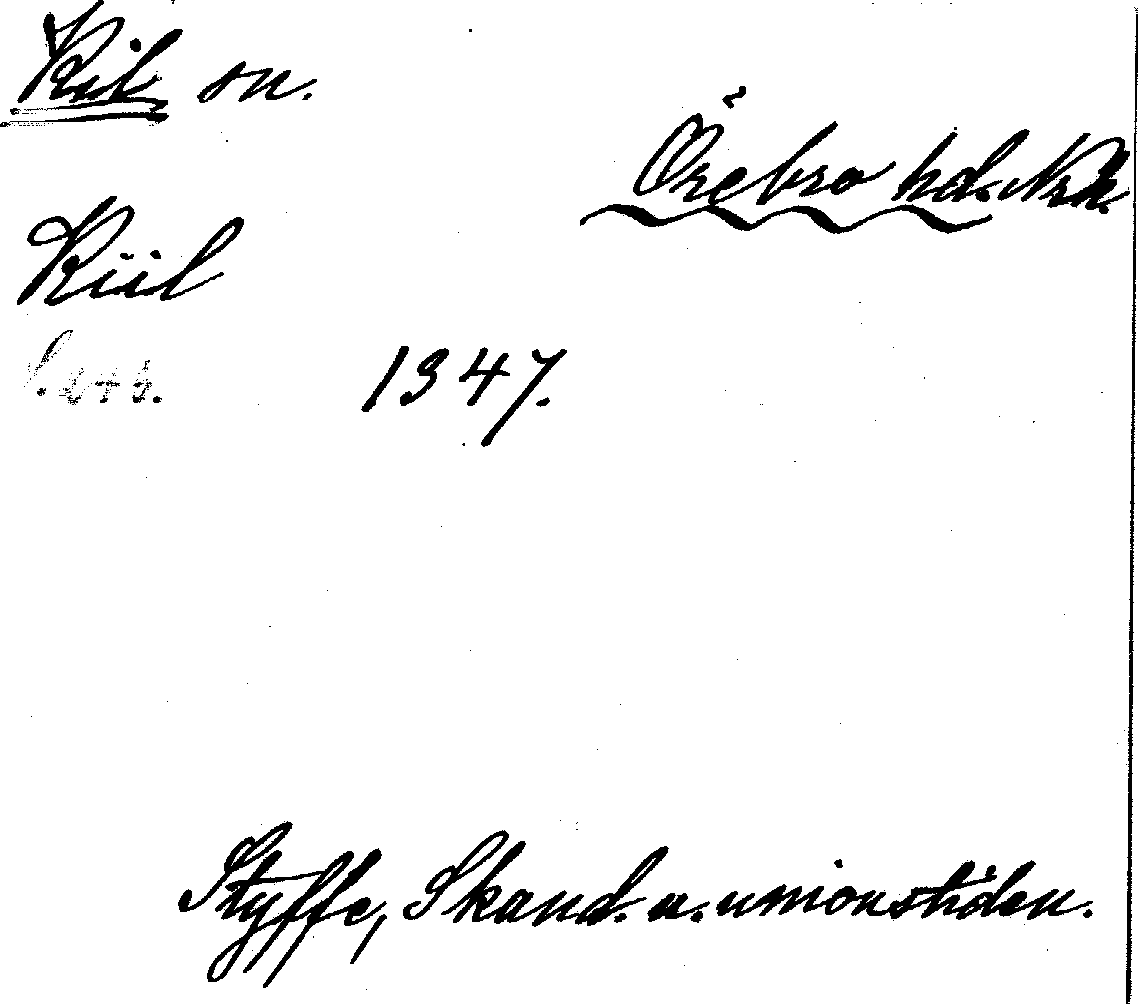 Kil sn.
Örebro hd. Nrk.
Kiil
1347.
Styffe, Skand. u. unionstiden.